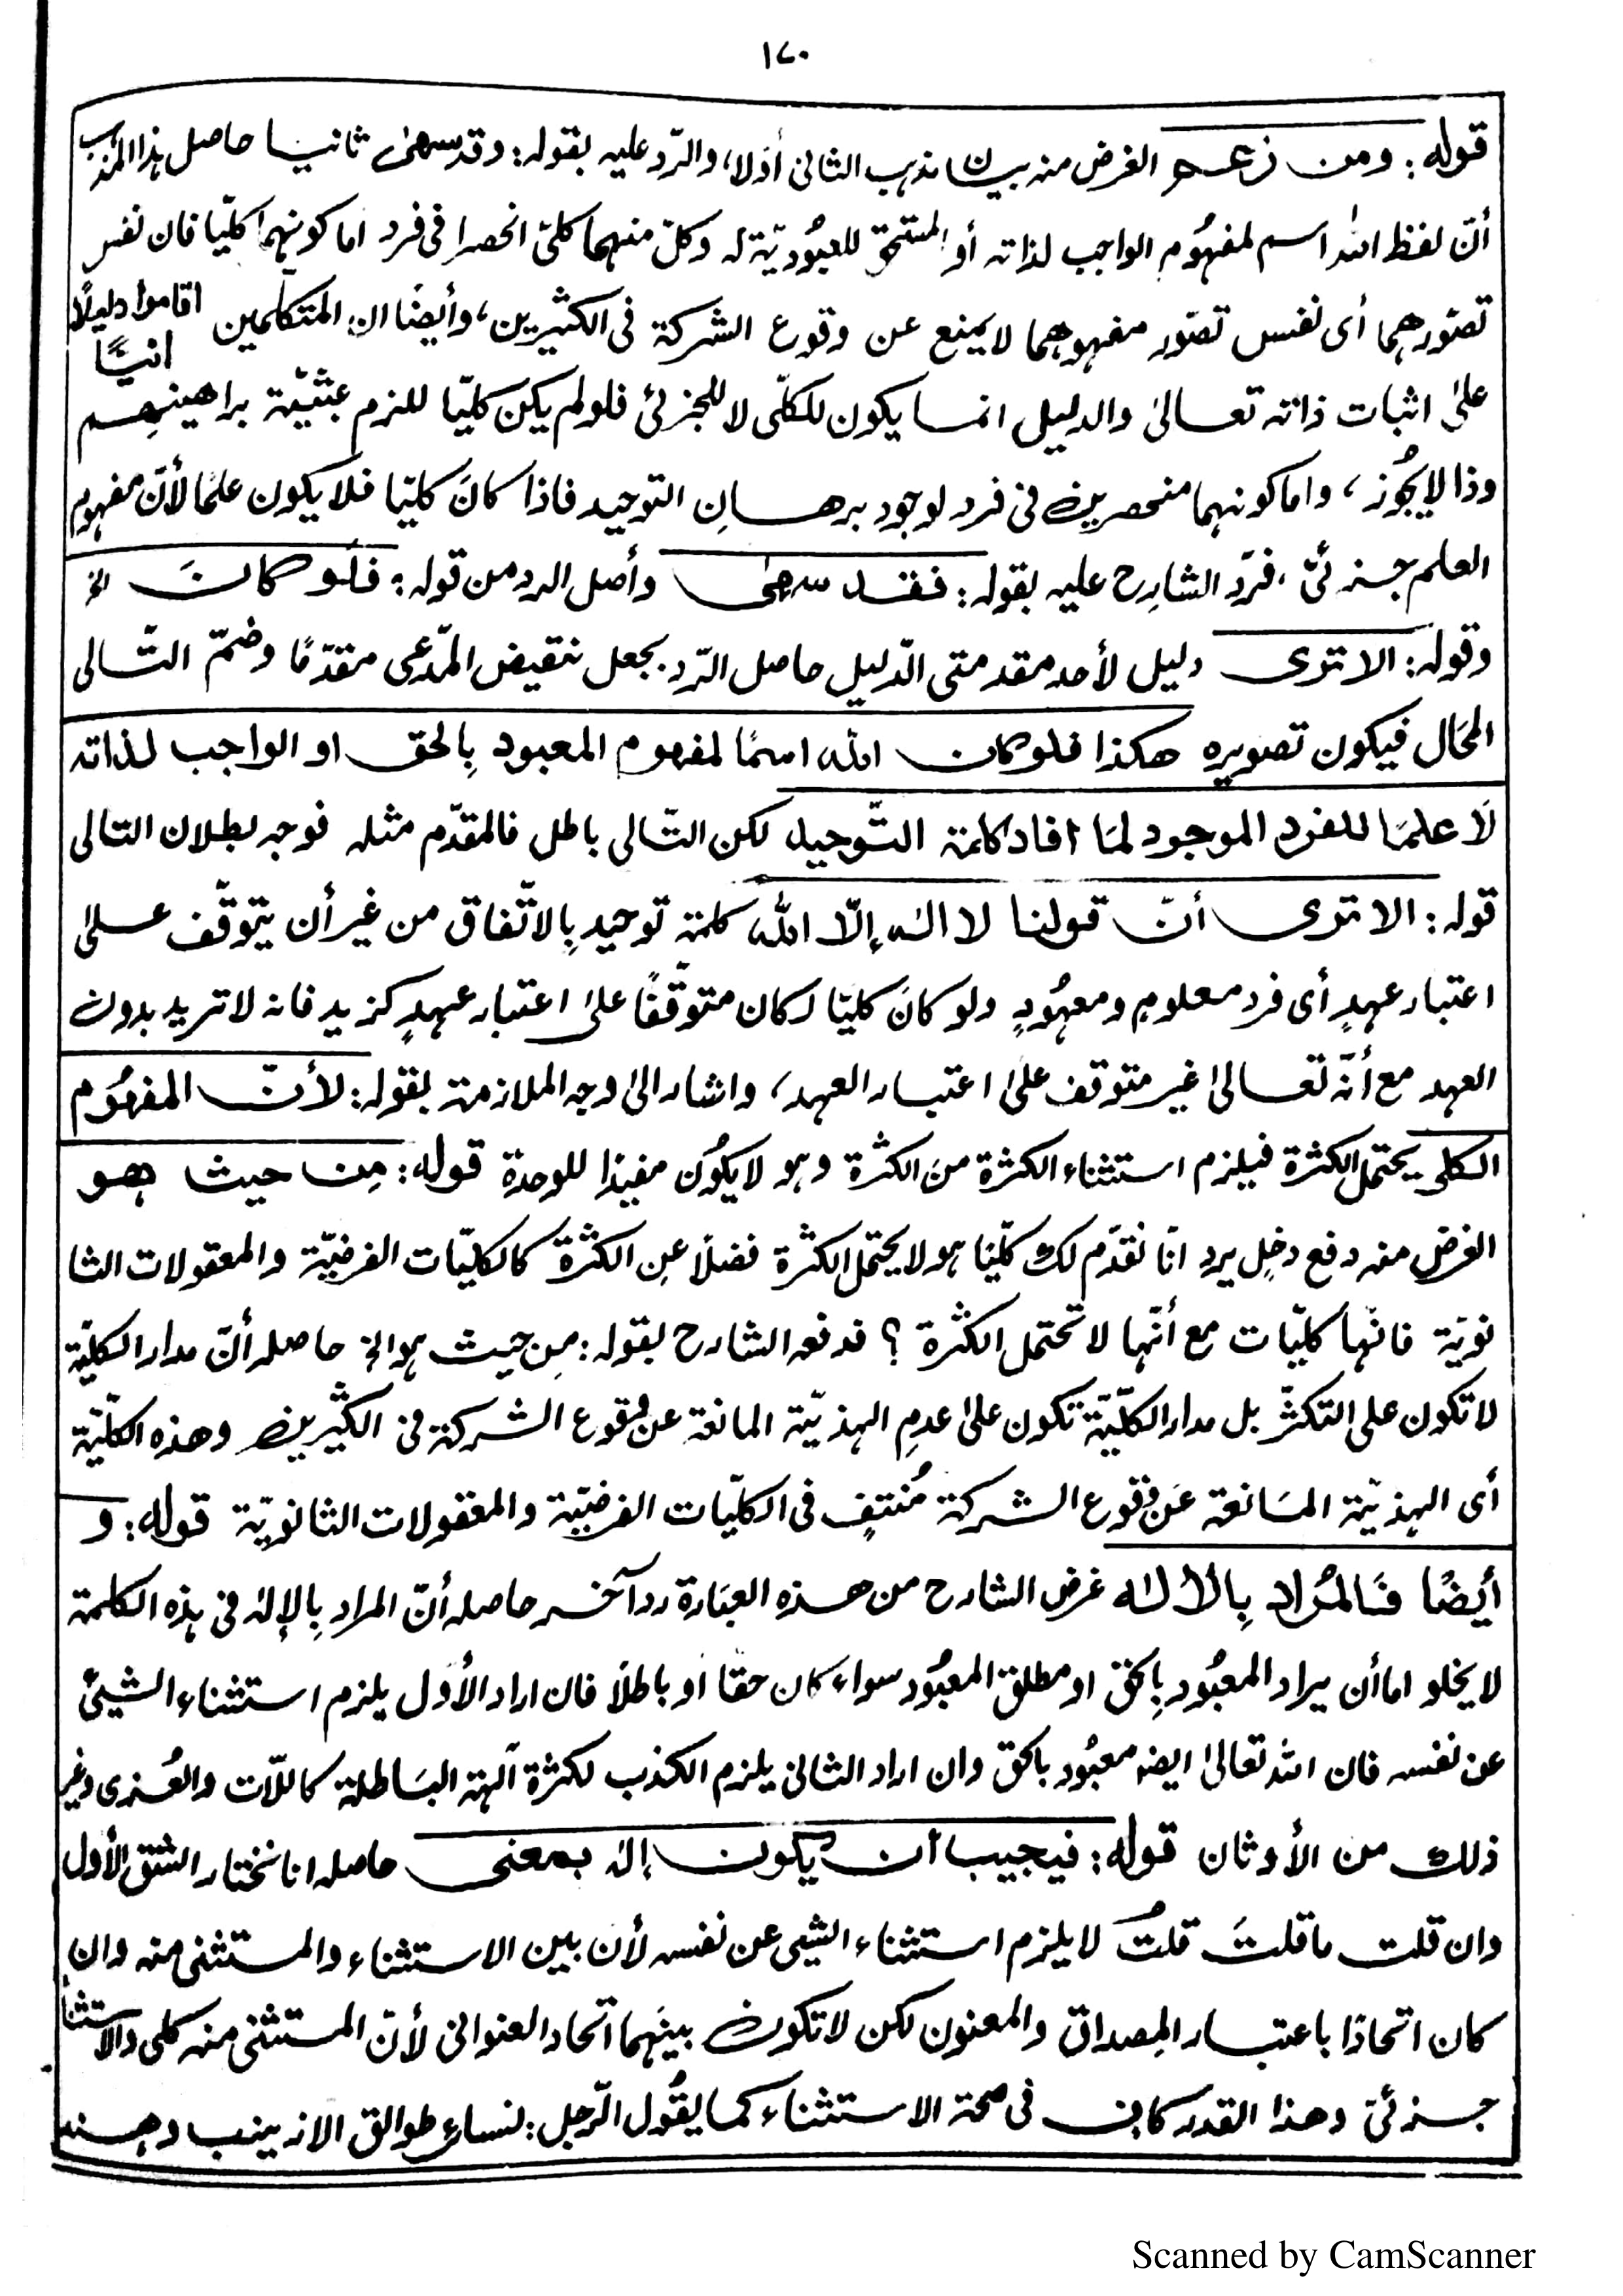 ١٧٠
قوله: ومن زعم الغرض منه بيان مذهب الثانى أولا، والرّد عليه بقوله: وقد سهىٰ ثانيا حاصل هذا المذهب
أنّ لفظ الله اسم لمفهُوم الواجب لذاته أو المستحق للعبُوديّة له وكلّ منهما كلىّ انحصرا فى فرد اما كونهما كلّيا فان نفس
تصّورهما أى نفس تصّور مفهوهما لا يمنع عن وقوع الشركة فى الكثيرين، وأيضًا ان المتكلّمين اقاموا دليلًا انيًّا
علىٰ اثبات ذاته تعالىٰ والدليل انما يكون للكلّى لا للجزئى فلو لم يكن كليّا للزم عبثيّة براهينهم
وذا لا يجُوز، واما كونهما منحصرين فى فرد لوجود برهانِ التوحيد فاذا كانَ كليّا فلا يكون علمًا لأنّ مفهوم
العلم جزئىّ، فرّد الشارح عليه بقوله: فقد سهىٰ وأصل الرد من قوله: فلو كانَ الخ
وقوله: الا ترى دليل لأحد مقدمتى الدّليل حاصل الرّد بجعل نقيض المدّعى مقدّمًا وضمّ التّالى
المحَال فيكون تصويره هكذا فلو كان الله اسمًا لمفهوم المعبود بِالحق او الواجب لذاته
لَا علمًا للفرد الموجود لمَا افاد كلمة التّوحيد لكن التّالى باطل فالمقدّم مثله فوجه بطلان التالى
قوله: الا ترى أنّ قولنا لا اله إلّا الله كلمة توحيد بِالاتّفاق من غير أن يتوقّف علىٰ
اعتبار عهدٍ أى فرد معلومٍ ومعهُودٍ ولو كانَ كليّا لكان متوقّفًا علىٰ اعتبار عهدٍ كزيد فانه لا تريد بدون
العهد مع أنّه تعالىٰ غير متوقف علىٰ اعتبار العهد، واشار الىٰ وجه الملازمة بقوله: لأنّ المفهُوم
الكلى يحتمل الكثرة فيلزم استثناء الكثرة منَ الكثرة وهو لا يكوُن مفيدًا للوحدة قوله: مِن حيث هو
الغرض منه دفع دخلٍ يرد انّا نقدّم لك كلّيا هو لا يحتمل الكثرة فضلًا عنِ الكثرة كالكليّات الفرضيّة والمعقولات الثا
نويّة فانّها كليّات مع أنّها لا تحتمل الكثرة؟ فدفعه الشارح بقوله: مِن حيث هو الخ حاصله أنّ مدار الكليّة
لا تكون على التكثّر بل مدار الكليّة تكون علىٰ عدمِ الهذيّة المانعة عن وقوع الشركة فى الكثيرين وهذه الكلّيّة
أى الهذيّة المَانعة عَن وقوع الشركة مُنتفٍ فى الكليّات الفرضيّة والمعقولات الثانويّة قوله: و
أيضًا فَالمُراد بِالاله غرض الشارح من هذهِ العبَارة رد آخر حاصله أنّ المراد بِالإله فى هذه الكلمة
لا يخلو اما أن يراد المعبُود بِالحق او مطلق المعبُود سواء كان حقّا او باطلًا فان اراد الأول يلزم استثناء الشيئ
عن نفسه فان الله تعالىٰ ايضا معبُود بالحق وان اراد الثانى يلزم الكذب لكثرة آلهة البَاطلة كاللّات والعُزى وغير
ذلك من الأوثان قوله: فيجيب أن يكون إله بمعنى حاصله انا نختار الشق الأول
وان قلت ما قلتَ قلتُ لا يلزم استثناء الشيى عن نفسه لأن بين الاستثناء والمستثنى منه وان
كان اتحادًا باعتبار المِصداق والمعنون لكن لا تكون بينهما اتحاد العنوانى لأنّ المستثنى منه كلى والاستثنا
جزئىّ وهذا القدر كافٍ فى صحة الاستثناء كما يقُول الرّجل: نساءى طوالق الا زينب وهند
Scanned by CamScanner